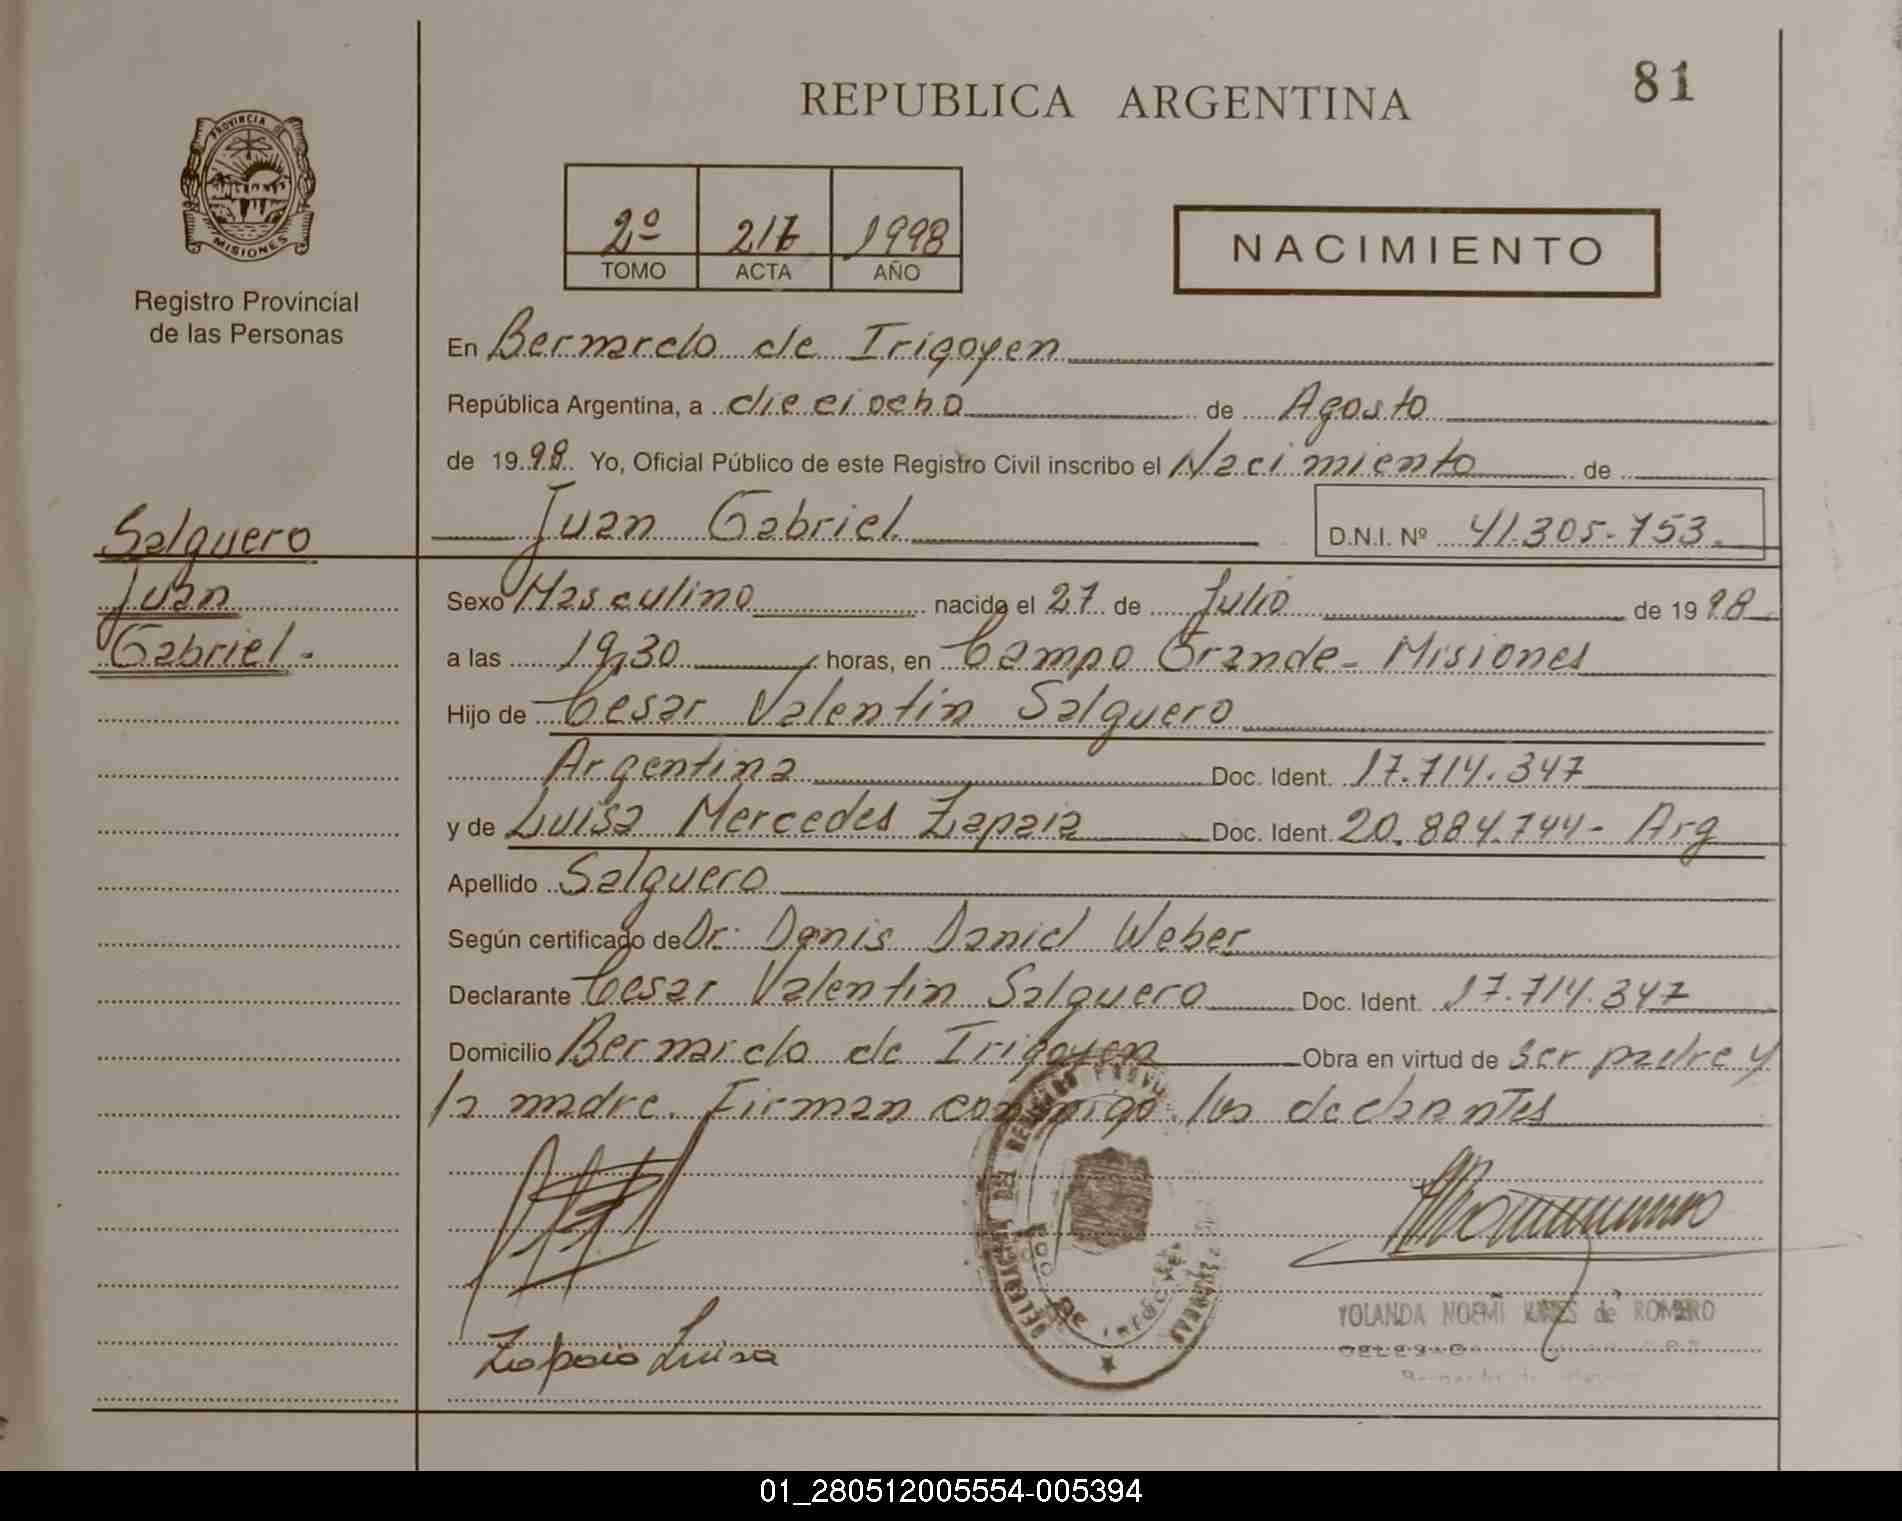 REPUBLICA ARGENTINA
81
PROVINCIA DE
MISIONES
Registro Provincial
de las Personas
2º 217 1998
TOMO ACTA AÑO
NACIMIENTO
En Bernardo de Irigoyen
República Argentina, a dieciocho de Agosto
de 1998 Yo, Oficial Público de este Registro Civil inscribo el Nacimiento de
Juan Gabriel D.N.I. Nº 41.305.753
Salguero
Juan
Gabriel.
Sexo Masculino nacido el 27 de Julio de 1998
a las 19,30 horas, en Campo Grande - Misiones
Hijo de Cesar Valentin Salguero
Argentina Doc. Ident. 17.714.347
y de Luisa Mercedes Zapaia Doc. Ident. 20.884.744 - Arg
Apellido Salguero
Según certificado de Dr. Denis Daniel Weber
Declarante Cesar Valentin Salguero Doc. Ident. 17.714.347
Domicilio Bernardo de Irigoyen Obra en virtud de ser padre y
la madre. Firman conmigo los declarantes
Zapaio Luisa
YOLANDA NOEMI de ROMERO
01_280512005554-005394